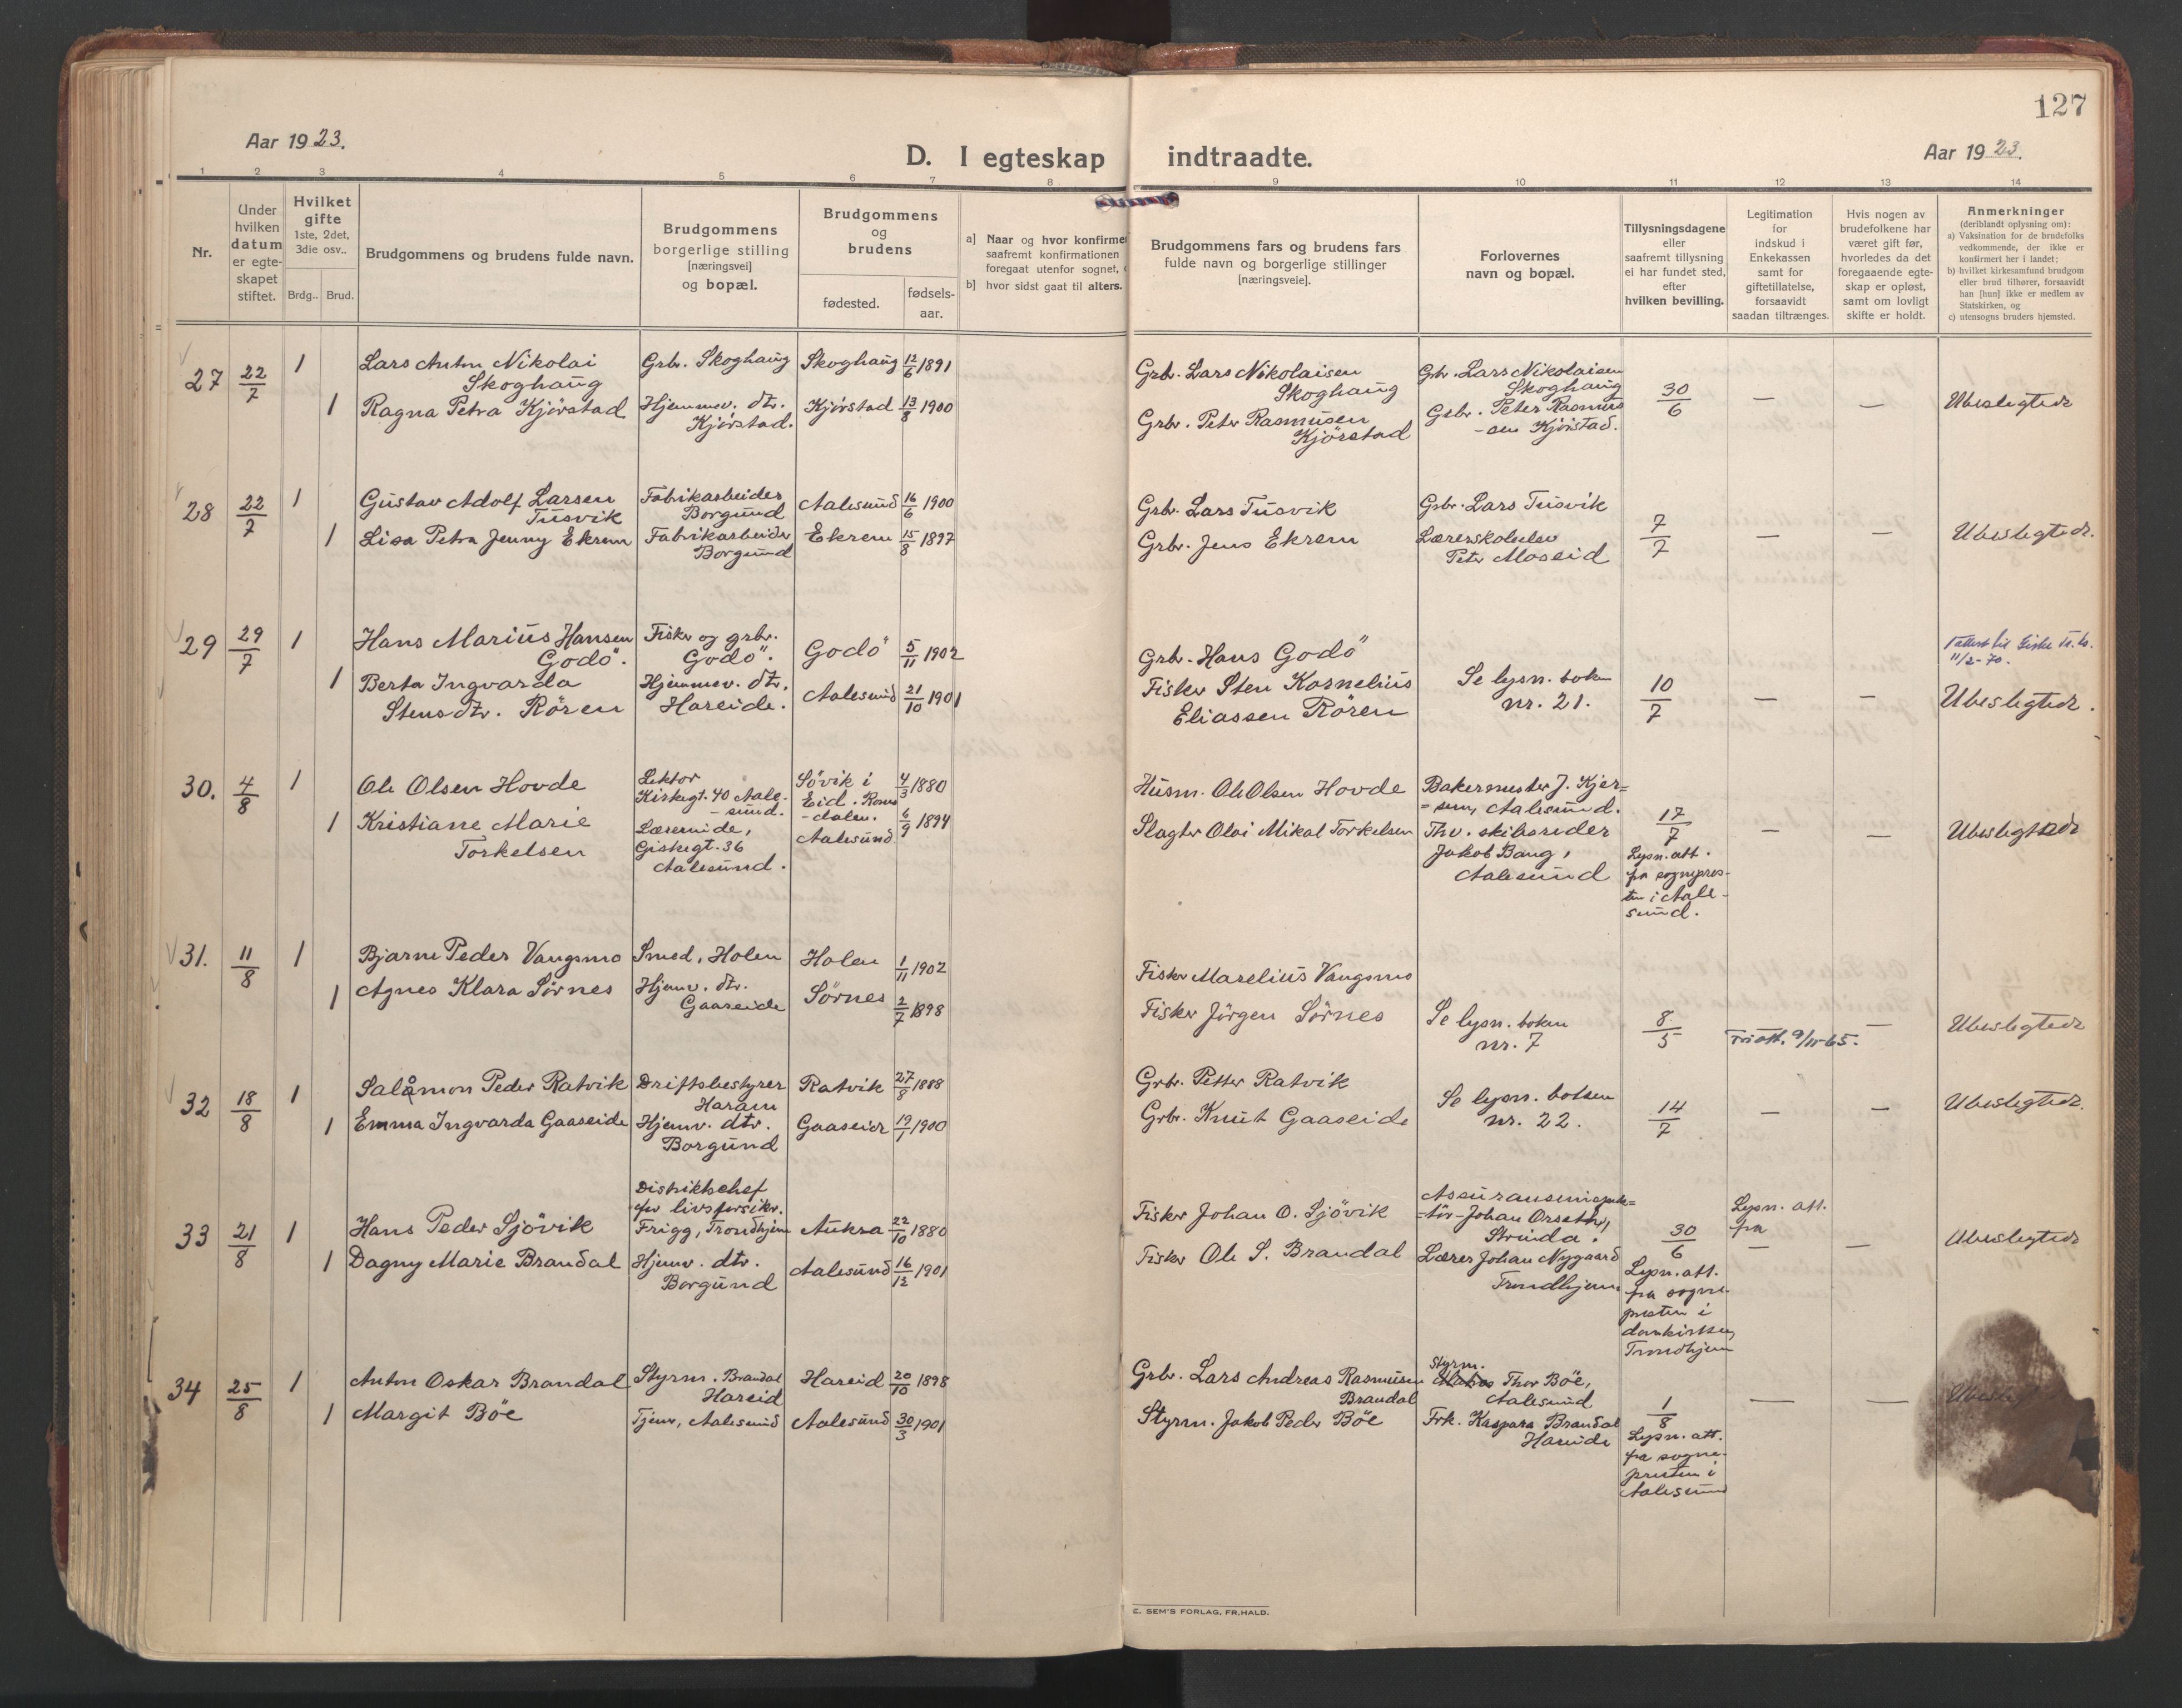 127
Aar 1923.
D. I egteskap indtraadte.
Aar 1923.
1 2 3 4 5 6 7 8 9 10 11 12 13 14
Nr.
Under
hvilken
datum
er egte-
skapet
stiftet.
Hvilket
gifte
1ste, 2det,
3die osv..
Brdg.. Brud.
Brudgommens og brudens fulde navn.
Brudgommens
borgerlige stilling
[næringsvei]
og bopæl.
Brudgommens
og
brudens
fødested.
fødsels-
aar.
a] Naar og hvor konfirme
saafremt konfirmationen
foregaat utenfor sognet,
b] hvor sidst gaat til alters.
Brudgommens fars og brudens fars
fulde navn og borgerlige stillinger
[næringsveie].
Forlovernes
navn og bopæl.
Tillysningsdagene
eller
saafremt tillysning
ei har fundet sted,
efter
hvilken bevilling.
Legitimation
for
indskud i
Enkekassen
samt for
giftetillatelse,
forsaavidt
saadan tiltrænges.
Hvis nogen av
brudefolkene har
været gift før,
hvorledes da det
foregaaende egte-
skap er opløst,
samt om lovligt
skifte er holdt.
Anmerkninger
(deriblandt oplysning om):
a) Vaksination for de brudefolks
vedkommende, der ikke er
konfirmert her i landet;
b) hvilket kirkesamfund brudgom
eller brud tilhører, forsaavidt
han [hun] ikke er medlem av
Statskirken, og
c) utensogns bruders hjemsted.
27 22/7 1
Lars Anton Nikolai
Skoghaug
Grb. Skoghaug
Skoghaug 12/6 1891
Grb. Lars Nikolaisen
Skoghaug
Grb. Lars Nikolaisen
Skoghaug
30/6 — —
Ubeslegtede
1 Ragna Petra Kjörstad
Hjemmev. dtr.
Kjörstad.
Kjörstad 13/8 1900
Grbr. Peter Rasmusen
Kjörstad
Gsbr. Peter Rasmus
-sen Kjörstad.
28 22/7 1
Gustav Adolf Larsen
Tusvik
Fabrikarbeider
Borgund
Aalesund 16/6 1900
Grb. Lars Tusvik
Grbr. Lars Tusvik
7/7 — —
Ubeslegtede.
1 Lisa Petra Jenny Ekrem
Fabrikarbeider
Borgund
Ekrem 15/8 1897
Grbr. Jens Ekrem
Lærerskoleelev
Peter Moseid
29 29/7 1
Hans Marius Hansen
Godö.
Fisker og grbr.
Godö.
Godö 5/11 1902
Grb. Hans Godö
Se lysn. boken
nr. 21.
10/7 — —
11/2-70.
Ubeslegtede.
1 Berta Ingvarda
Stensdtr. Rören
Hjemmev. dtr.
Hareide.
Aalesund 21/10 1901
Fisker Sten Kornelius
Eliassen Rören
30. 4/8 1
Ole Olsen Hovde
Lektor
Kirkegt. 40 Aale-
-sund.
Sövik i
Eid. Roms
-dalen. 4/3 1880
Husm. Ole Olsen Hovde
Bakermester J. Kjer=
=sem, Aalesund.
17/7
Lysn. att.
fra sognepres-
ten i Aale-
sund.
— —
Ubeslegtede
1 Kristiane Marie
Torkelsen
Lærerinde,
Giskegt. 36
Aalesund.
Aalesund 6/9 1894
Slagter Olai Mikal Torkelsen
Thv. skibsreder
Jakob Bang,
Aalesund
31. 11/8 1
Bjarne Peder Vangsmo
Smed, Holen
Holen 1/11 1902
Fisker Marelius Vangsmo
Se lysn. boken
nr. 7
8/5
att. 9/11-65. —
Ubeslegtede
1 Agnes Klara Sörnes
Hjemv. dtr.
Gaaseide
Sörnes 2/7 1898
Fisker Jörgen Sörnes
32 18/8 1
Salåmon Peder Ratvik
Driftsbestyrer
Haram
Ratvik 27/8 1888
Grbr. Petter Ratvik
Se lysn. boken
nr. 22.
14/7 — —
Ubeslegtede.
1 Emma Ingvarda Gaaseide
Hjemv. dtr.
Borgund
Gaaseide 19/1 1900
Grbr. Knut Gaaseide
33 21/8 1
Hans Peder Sjövik
Distriktschef
for livsforsikr.
Frigg, Trondhjem
Aukra 22/10 1880
Fisker Johan O. Sjövik
Assuranseinspek=
=tör Johan Orseth,
Strinda.
30/6
Lysn. att.
fra sogne-
presten i
domkirken,
Trondhjem
Lysn. att.
fra
— —
Ubeslegtede
1 Dagny Marie Brandal
Hjemv. dtr.
Borgund
Aalesund 16/12 1901
Fisker Ole S. Brandal
Lærer Johan Nygaard
Trondhjem.
34 25/8 1
Anton Oskar Brandal
Styrm. Brandal
Hareid
Hareid 20/10 1898
Grbr. Lars Andreas Rasmusen
Brandal
Styrm.
Thor Böe,
Aalesund
1/8
Lysn. att.
fra sogne-
presten i
Aalesund
— —
1 Margit Böe
Tjenv, Aalesund
Aalesund 30/3 1901
Styrm. Jakob Peder Böe
Frk. Kaspara Brandal
Hareide
E. SEM'S FORLAG, FR.HALD.